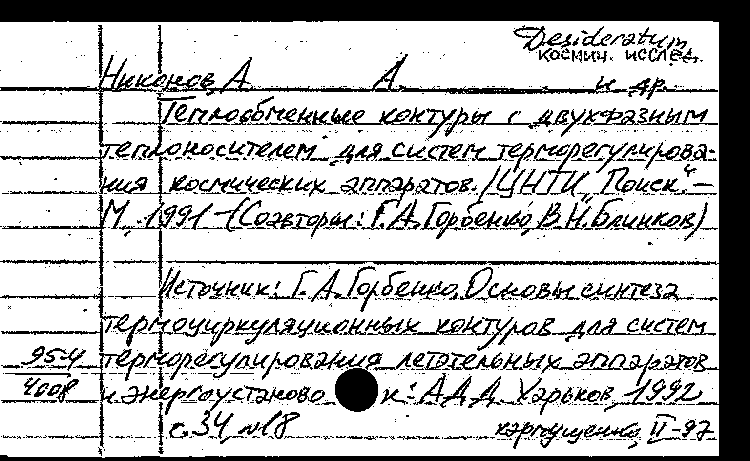 Desideratum
космич. исслед.
Никонов, А. А. и др.
Теплообменные контуры с двухфазным
теплоносителем для систем терморегулирова-
ния космических аппаратов. /ЦНТИ „Поиск“. –
М., 1991 – (Соавторы: Г. А. Горбенко, В. Н. Блинков)
Источник: Г. А. Горбенко. Основы синтеза
термоциркуляционных контуров для систем
95-4 терморегулирования летательных аппаратов
4008 и энергоустаново к: АДД. Харьков, 1992
с. 34, №18 II-97